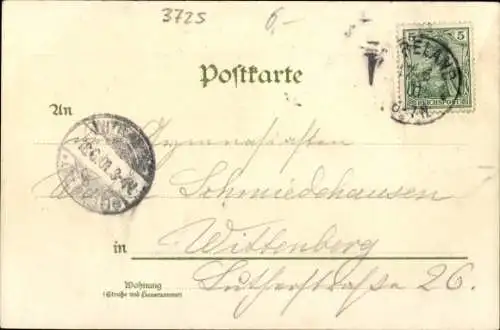 3725
6.-
5 5
REICHSPOST
Postkarte
An
Gymnasiasten
W. Schmiedehausen
in Wittenberg
Wohnung
(Straße und Hausnummer)
Lutherstraße 26.